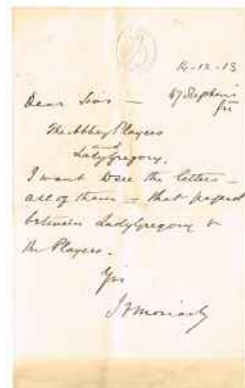 14-12-13
47 Stephen's
Gn
Dear Sirs —
The Abbey Players
and
Lady Gregory.
I want to see the letters —
all of them — that passed
between Lady Gregory &
the Players.
Yrs